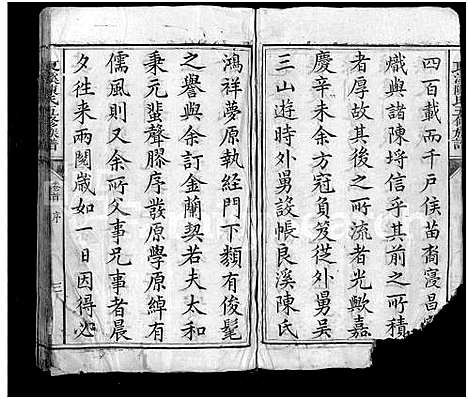 四百載而千戶侯苗裔寖昌
熾與諸陳埓信乎其前之所積
者厚故其後之所流者光歟嘉
慶辛未余方冠負笈從外舅吳
三山遊時外舅設帳良溪陳氏
鴻祥夢原執經門下頪有俊髦
之譽與余訂金蘭契若夫太和
秉元蜚聲膠序發原學原綽有
儒風則又余所父事兄事者晨
夕徃来兩閱歲如一日因得必
卷首 序
三